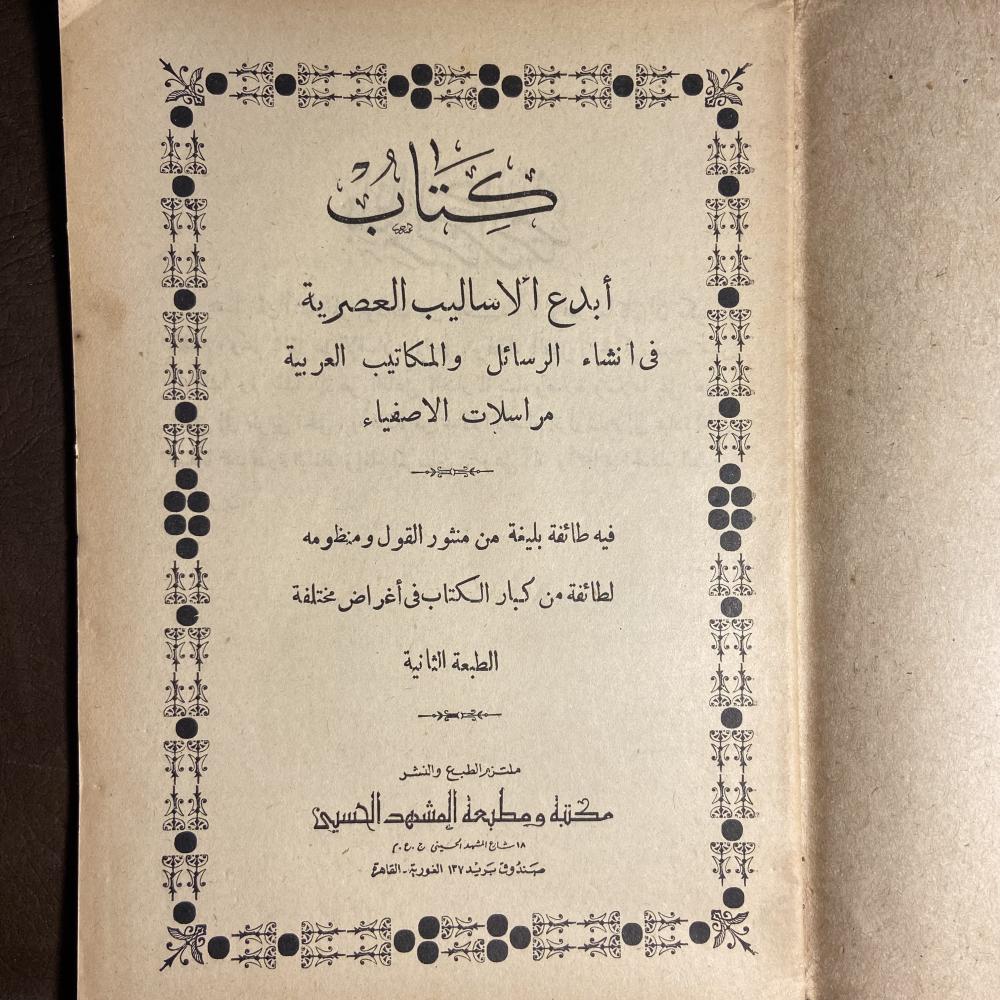 كِتَابُ
أبدع الاساليب العصرية
فى انشاء الرسائل والمكاتيب العربية
مراسلات الاصفياء
فيه طائفة بليغة من منثور القول ومنظومه
لطائفة من كبار الكتاب فى أغراض مختلفة
الطبعة الثانية
ملتزم الطبع والنشر
مكتبة ومطبعة المشهد الحسينى
١٨ شارع المشهد الحسينى ج.ع.م
صندوق بريد ١٣٧ الغورية - القاهرة